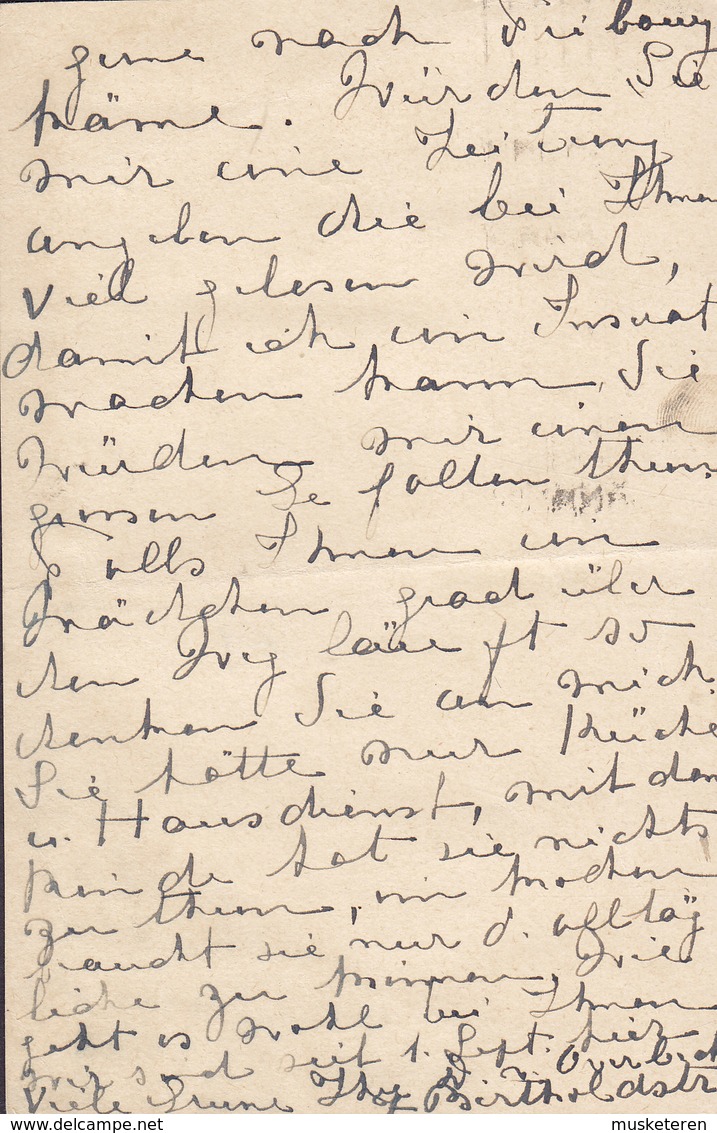 gerne nach
käme. Würden Sie
mir eine Zeitung
angeben die bei Ihnen
viel gelesen wird,
damit ich ein Inserat
machen kann, Sie
würden mir einen
grosen Gefallen thun.
Falls Ihnen ein
Mädchen grad über
den Weg läuft so
denken Sie an mich.
Sie hätte nur Küche
u. Hausdienst, mit dem
Kinde hat sie nichts
zu thun, im kochen
braucht sie nur d. alltäg
liche zu können, Wie
geht es wohl bei Ihnen
wir sind seit 1. Sept. hier
Viele Ihre Bertholdstr
musketeren